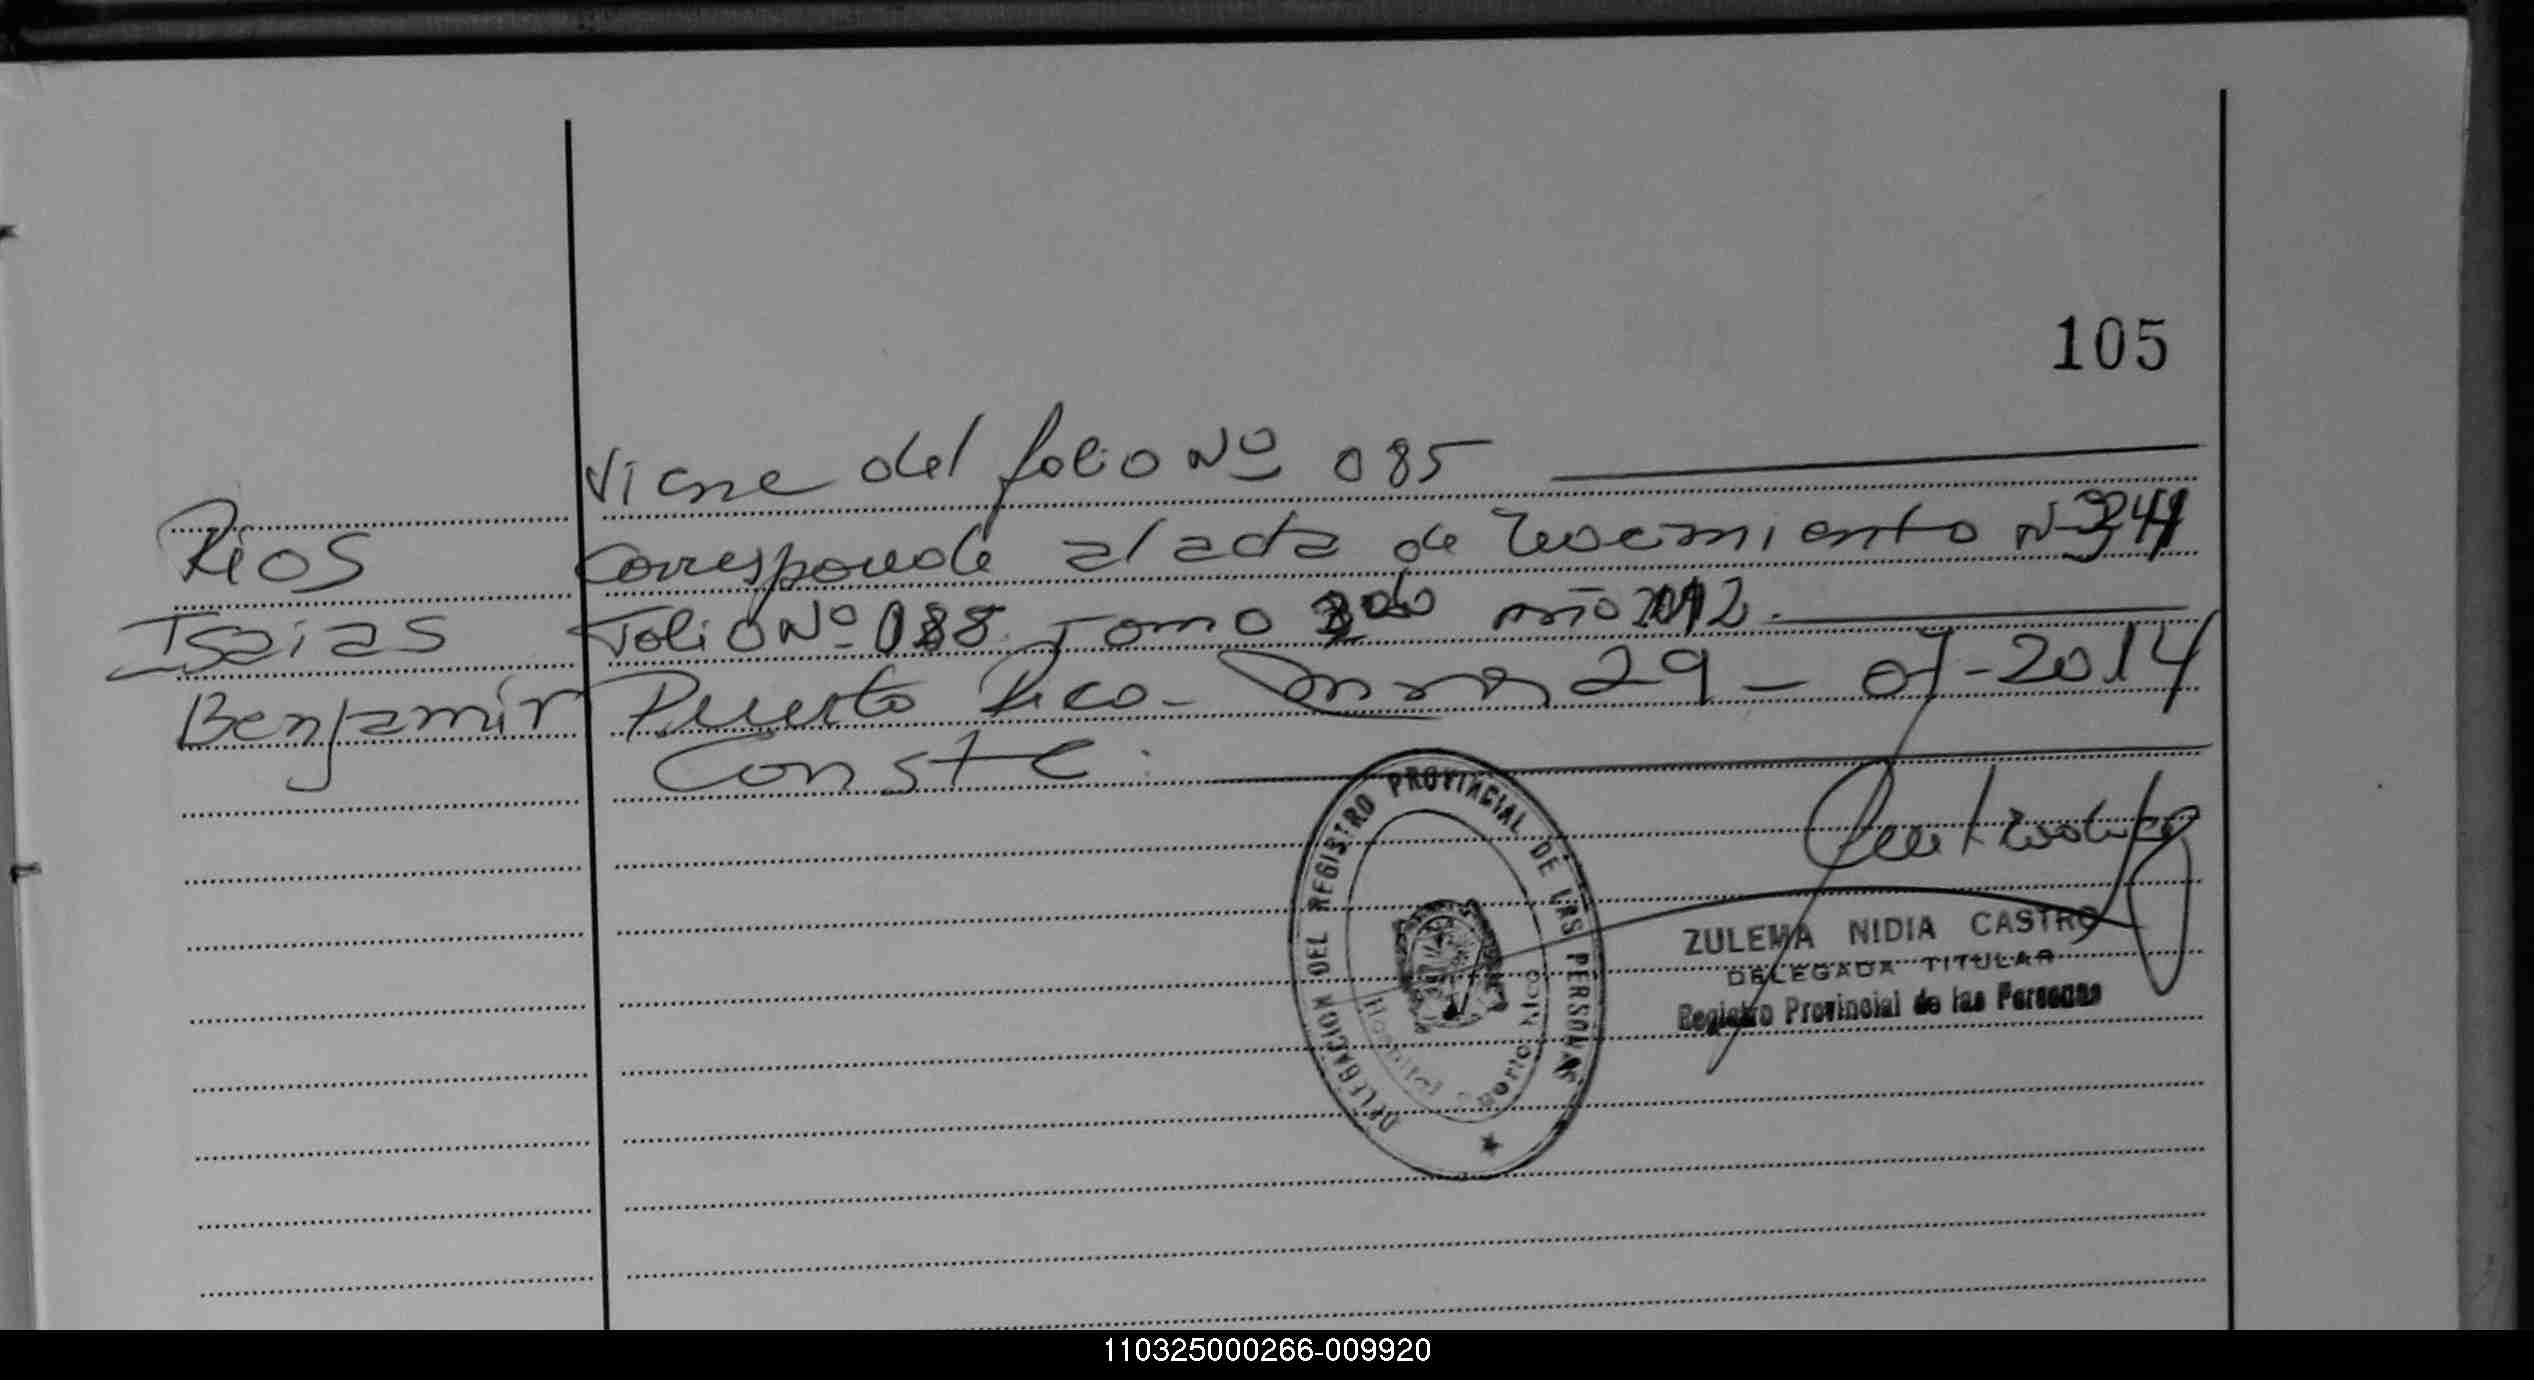 105
Viene del folio Nº 085
Rios
Corresponde al acta de Nacimiento Nº 344
Isaias
Folio Nº 088 Tomo año 2012.
Benjamin
Puerto Rico - 29 - 07 - 2014
Conste.
DELEGACION DEL REGISTRO PROVINCIAL DE LAS PERSONAS
Hospital Puerto Rico
ZULEMA NIDIA CASTRO
DELEGADA TITULAR
Registro Provincial de las Personas
110325000266-009920